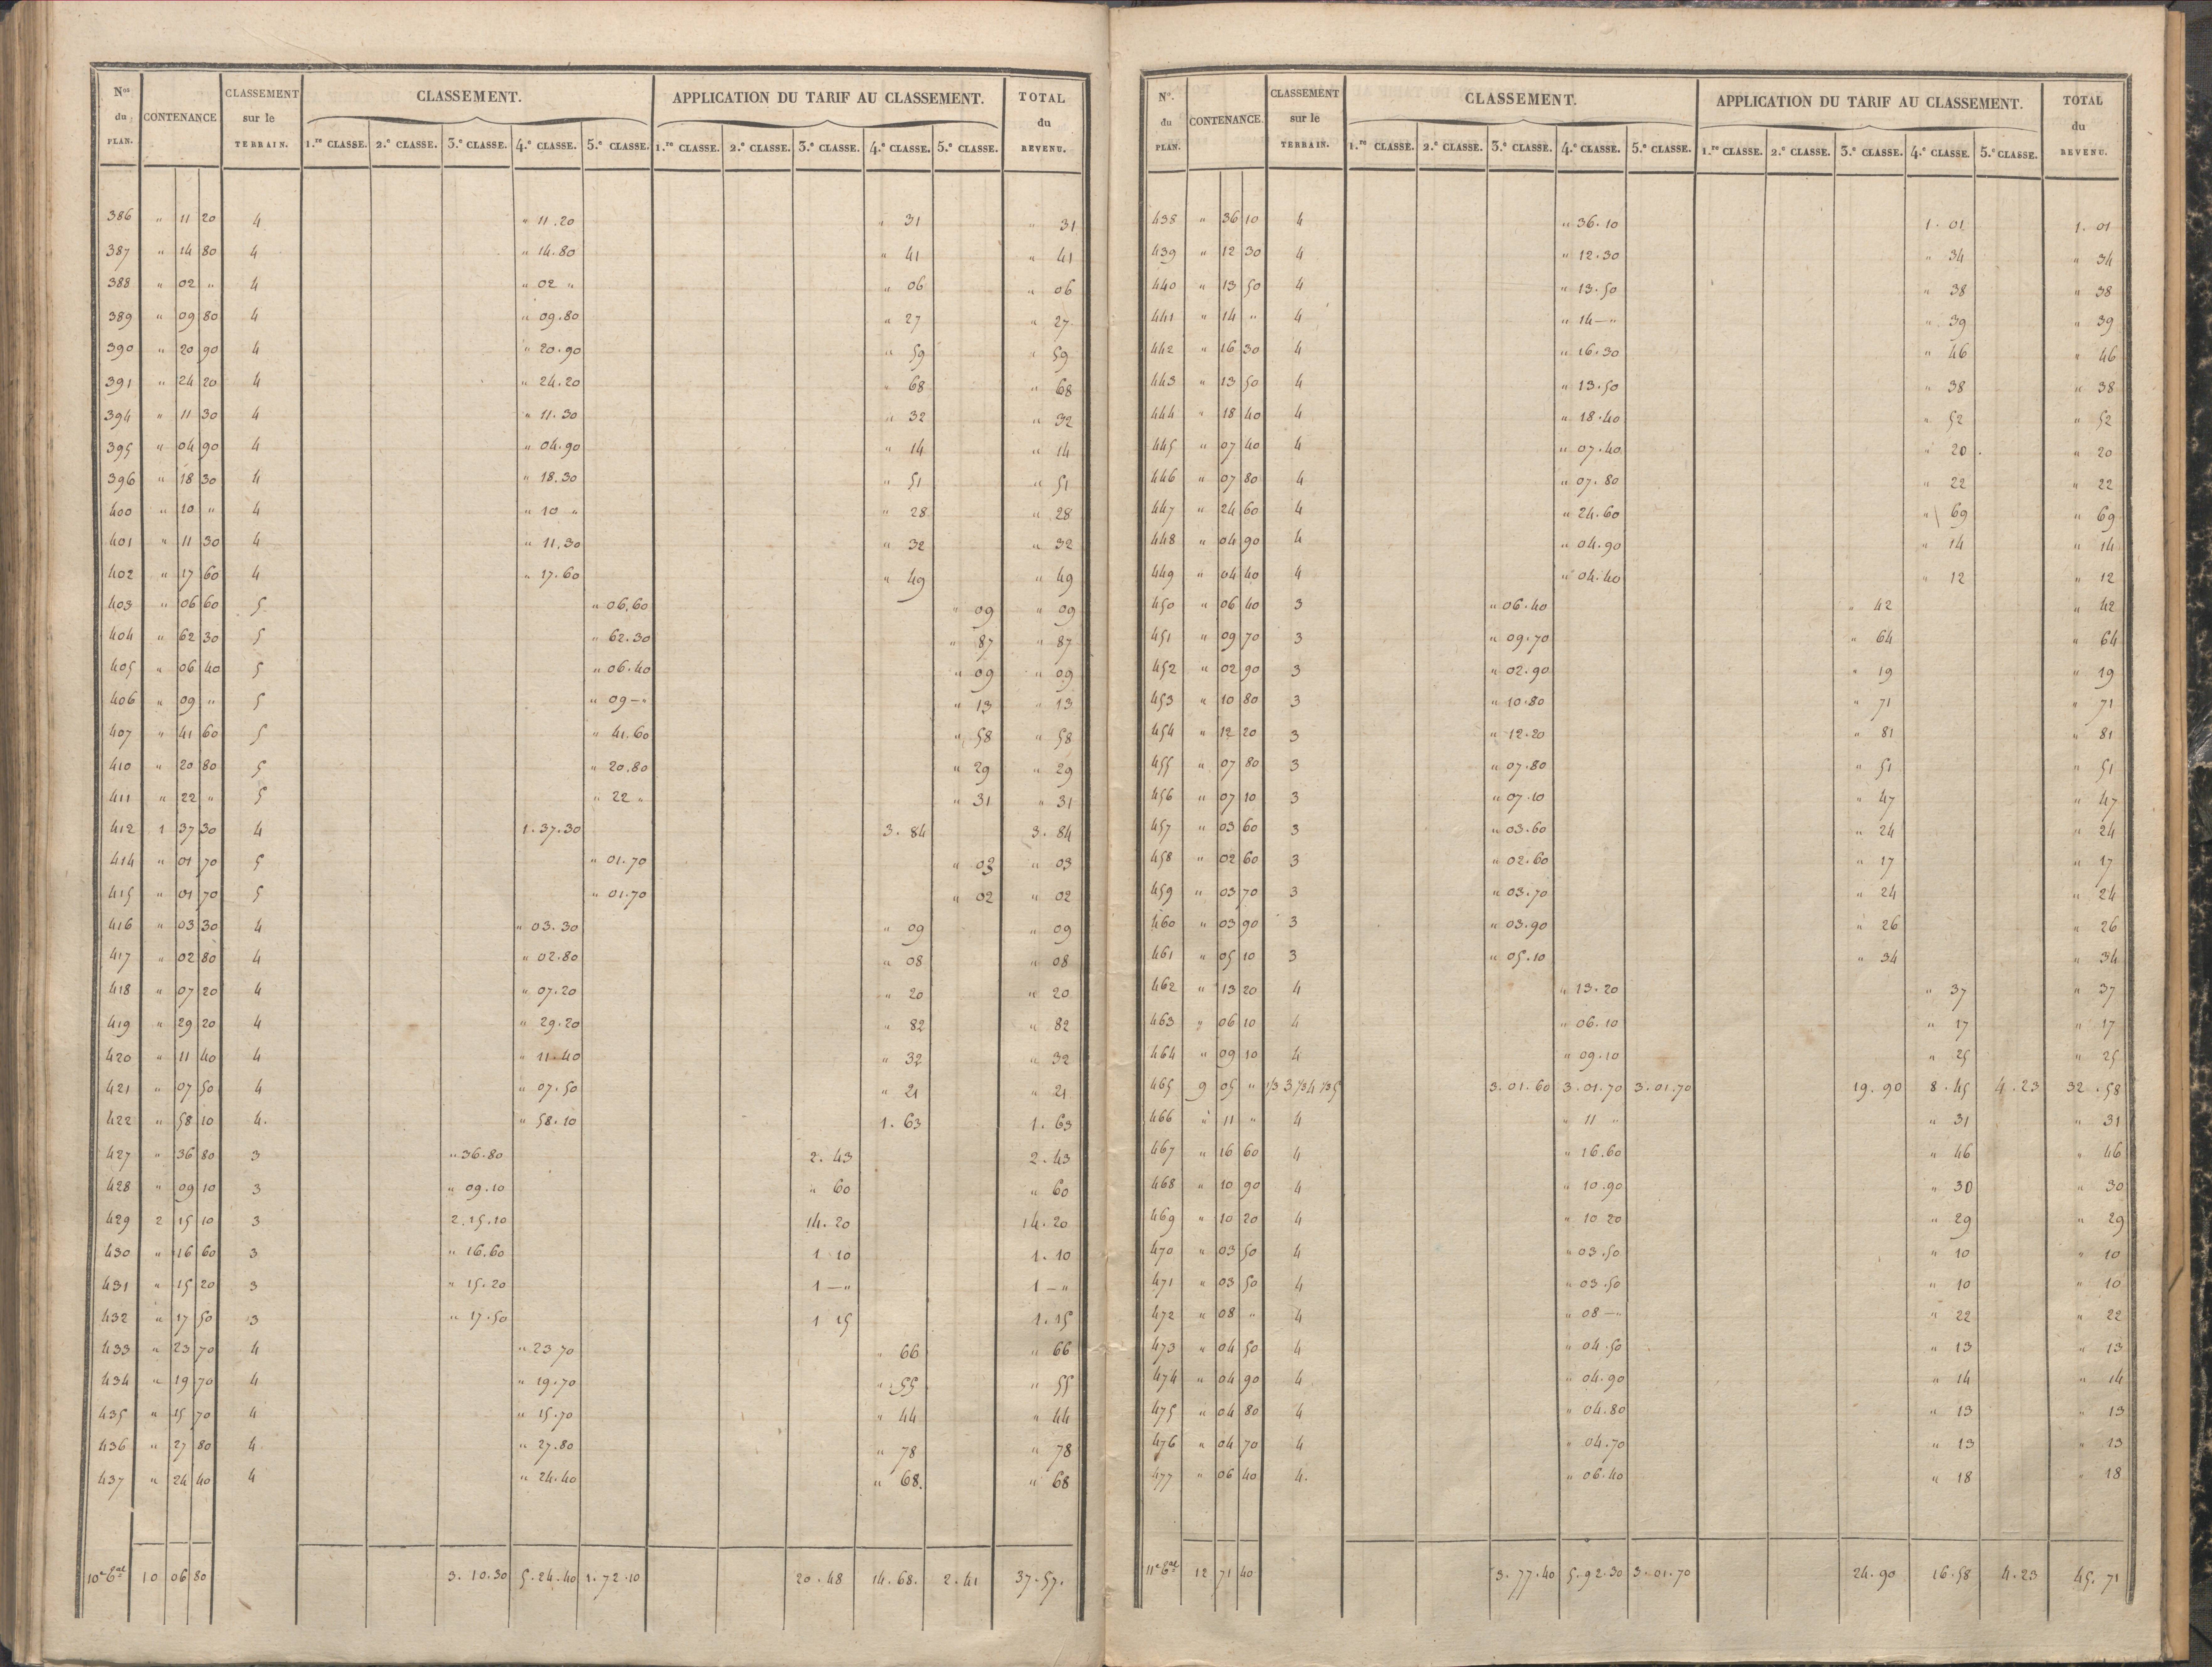 Nos du PLAN. CONTENANCE CLASSEMENT sur le TERRAIN. CLASSEMENT. APPLICATION DU TARIF AU CLASSEMENT. TOTAL du REVENU.
1.re CLASSE. 2.e CLASSE. 3.e CLASSE. 4.e CLASSE. 5.e CLASSE. 1.re CLASSE. 2.e CLASSE. 3.e CLASSE. 4.e CLASSE. 5.e CLASSE.
386 " 11 20 4 " 11.20 " 31 " 31
387 " 14 80 4 " 14.80 " 41 " 41
388 " 02 " 4 " 02 " " 06 " 06
389 " 09 80 4 " 09.80 " 27 " 27
390 " 20 90 4 " 20.90 " 59 " 59
391 " 24 20 4 " 24.20 " 68 " 68
394 " 11 30 4 " 11.30 " 32 " 32
395 " 04 90 4 " 04.90 " 14 " 14
396 " 18 30 4 " 18.30 " 51 " 51
400 " 10 " 4 " 10 " " 28 " 28
401 " 11 30 4 " 11.30 " 32 " 32
402 " 17 60 4 " 17.60 " 49 " 49
403 " 06 60 5 " 06.60 " 09 " 09
404 " 62 30 5 " 62.30 " 87 " 87
405 " 06 40 5 " 06.40 " 09 " 09
406 " 09 " 5 " 09 — " " 13 " 13
407 " 41 60 5 " 41.60 " 58 " 58
410 " 20 80 5 " 20.80 " 29 " 29
411 " 22 " 5 " 22 " " 31 " 31
412 1 37 30 4 1.37.30 3.84 3.84
414 " 01 70 5 " 01.70 " 03 " 03
415 " 01 70 5 " 01.70 " 02 " 02
416 " 03 30 4 " 03.30 " 09 " 09
417 " 02 80 4 " 02.80 " 08 " 08
418 " 07 20 4 " 07.20 " 20 " 20
419 " 29 20 4 " 29.20 " 82 " 82
420 " 11 40 4 " 11.40 " 32 " 32
421 " 07 50 4 " 07.50 " 21 " 21
422 " 58 10 4. " 58.10 1.63 1.63
427 " 36 80 3 " 36.80 2.43 2.43
428 " 09 10 3 " 09.10 " 60 " 60
429 2 15 10 3 2.15.10 14.20 14.20
430 " 16 60 3 " 16.60 1 10 1.10
431 " 15 20 3 " 15.20 1 — " 1 — "
432 " 17 50 3 " 17.50 1 15 1.15
433 " 23 70 4 " 23 70 " 66 " 66
434 " 19 70 4 " 19.70 " 55 " 55
435 " 15 70 4 " 15.70 " 44 " 44
436 " 27 80 4 " 27.80 " 78 " 78
437 " 24 40 4 " 24.40 " 68. " 68
10e Tal 10 06 80 3.10.30 5.24.40 1.72.10 20.48 14.68. 2.41 37.57.
No. du PLAN. CONTENANCE. CLASSEMENT sur le TERRAIN. CLASSEMENT. APPLICATION DU TARIF AU CLASSEMENT. TOTAL du REVENU.
1.re CLASSE. 2.e CLASSE. 3.e CLASSE. 4.e CLASSE. 5.e CLASSE. 1.re CLASSE. 2.e CLASSE. 3.e CLASSE. 4.e CLASSE. 5.e CLASSE.
438 " 36 10 4 " 36.10 1.01 1.01
439 " 12 30 4 " 12.30 " 34 " 34
440 " 13 50 4 " 13.50 " 38 " 38
441 " 14 " 4 " 14 — " " 39 " 39
442 " 16 30 4 " 16.30 " 46 " 46
443 " 13 50 4 " 13.50 " 38 " 38
444 " 18 40 4 " 18.40 " 52 " 52
445 " 07 40 4 " 07.40 " 20 " 20
446 " 07 80 4 " 07.80 " 22 " 22
447 " 24 60 4 " 24.60 " 69 " 69
448 " 04 90 4 " 04.90 " 14 " 14
449 " 04 40 4 " 04.40 " 12 " 12
450 " 06 40 3 " 06.40 " 42 " 42
451 " 09 70 3 " 09.70 " 64 " 64
452 " 02 90 3 " 02.90 " 19 " 19
453 " 10 80 3 " 10.80 " 71 " 71
454 " 12 20 3 " 12.20 " 81 " 81
455 " 07 80 3 " 07.80 " 51 " 51
456 " 07 10 3 " 07.10 " 47 " 47
457 " 03 60 3 " 03.60 " 24 " 24
458 " 02 60 3 " 02.60 " 17 " 17
459 " 03 70 3 " 03.70 " 24 " 24
460 " 03 90 3 " 03.90 " 26 " 26
461 " 05 10 3 " 05.10 " 34 " 34
462 " 13 20 4 " 13.20 " 37 " 37
463 " 06 10 4 " 06.10 " 17 " 17
464 " 09 10 4 " 09.10 " 25 " 25
465 9 05 " 1/3 3 1/3 4 1/3 5 3.01.60 3.01.70 3.01.70 19.90 8.45 4.23 32.58
466 " 11 " 4 " 11 " " 31 " 31
467 " 16 60 4 " 16.60 " 46 " 46
468 " 10 90 4 " 10.90 " 30 " 30
469 " 10 20 4 " 10 20 " 29 " 29
470 " 03 50 4 " 03.50 " 10 " 10
471 " 03 50 4 " 03.50 " 10 " 10
472 " 08 " 4 " 08 — " " 22 " 22
473 " 04 50 4 " 04.50 " 13 " 13
474 " 04 90 4 " 04.90 " 14 " 14
475 " 04 80 4 " 04.80 " 13 " 13
476 " 04 70 4 " 04.70 " 13 " 13
477 " 06 40 4. " 06.40 " 18 " 18
11e Tal 12 71 40 3.77.40 5.92.30 3.01.70 24.90 16.58 4.23 45.71